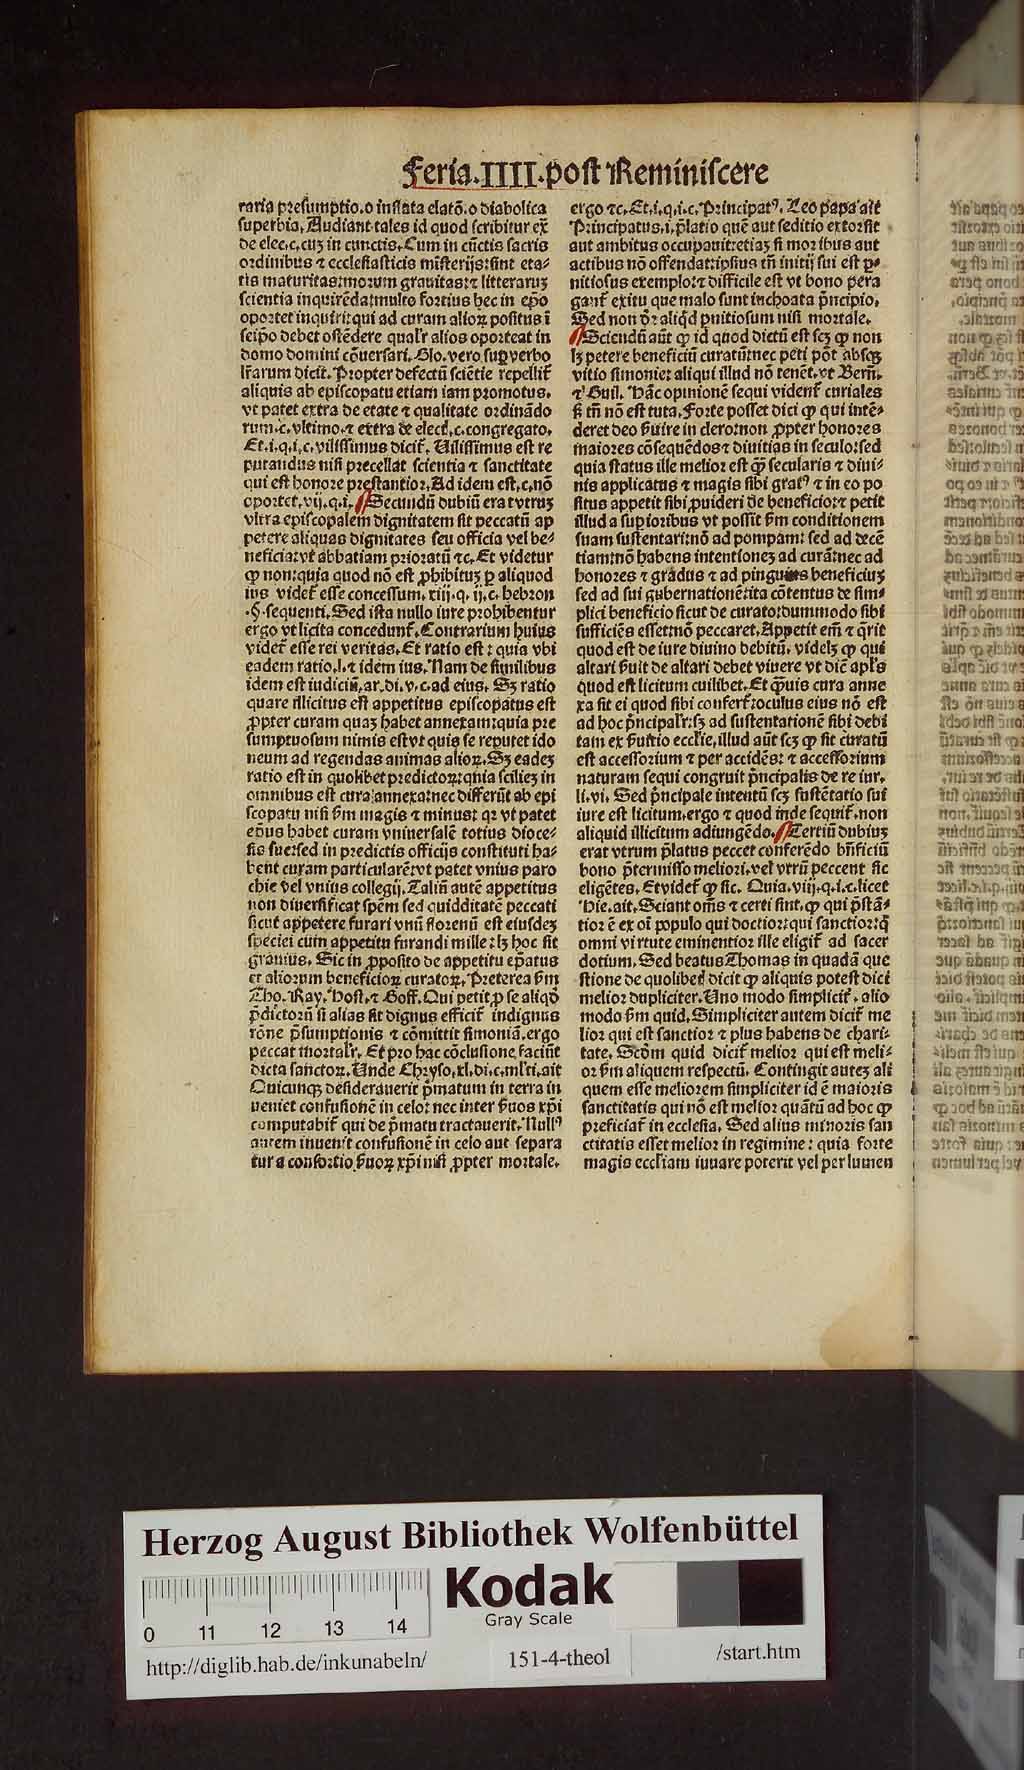 Feria.IIII.post Reminiscere
raria presumptio.o inflata elatõ.o diabolica
superbia. Audiant tales id quod scribitur ex̃
de elec.c.cuʒ in cunctis. Cum in cũctis sacris
ordinibus ⁊ ecclesiasticis misterijs:sint eta⸗
tis maturitas:morum grauitas:⁊ litteraruʒ
scientia inquirẽda:multo fortius hec in epõ
oportet inquiri:qui ad curam alioꝝ positus ĩ
seipõ debet ostẽdere qualr̃ alios oporteat in
domo domini cõuersari. Glo. vero sup verbo
lr̃arum dicit. Propter defectũ sciẽtie repellit̃
aliquis ab episcopatu etiam iam promotus.
vt patet extra de etate ⁊ qualitate ordinãdo
rum.c.vltimo.⁊ extra de elect.c.congregato.
Et.i.q.i.c.vilissimus dicit̃. Uilissimus est re
putandus nisi precellat scientia ⁊ sanctitate
qui est honore prestantior. Ad idem est.c.nõ
oportet.vij.q.i. Secundũ dubiũ erat vtruʒ
vltra episcopalem dignitatem sit peccatũ ap
petere aliquas dignitates seu officia vel be⸗
neficia:vt abbatiam prioratũ ⁊c. Et videtur
ꝙ non:quia quod nõ est ꝓhibituʒ ꝑ aliquod
ius videt̃ esse concessum.xiij.q.ij.c.hebron
.§.sequenti. Sed ista nullo iure prohibentur
ergo vt licita concedunt̃. Contrarium huius
videt̃ esse rei veritas. Et ratio est: quia vbi
eadem ratio.i.⁊ idem ius. Nam de similibus
idem est iudiciũ.ar.di.v.c.ad eius. Sʒ ratio
quare illicitus est appetitus episcopatus est
ꝓpter curam quaʒ habet annexam:quia pre
sumptuosum nimis est vt quis se reputet ido
neum ad regendas animas alioꝝ. Sʒ eadeʒ
ratio est in quolibet predictoꝝ:quia sciliʒ in
omnibus est cura annexa:nec differũt ab epi
scopatu nisi ẜm magis ⁊ minus: qꝛ vt patet
ep̃us habet curam vniuersalẽ totius dioce⸗
sis sue:sed in predictis officijs constituti ha⸗
bent curam particularẽ:vt patet vnius paro
chie vel vnius collegij. Taliũ autẽ appetitus
non diuersificat spẽm sed quidditatẽ peccati
sicut appetere furari vnũ florenũ est eiusdeʒ
speciei cum appetitu furandi mille: lʒ hoc sit
grauius. Sic in ꝓposito de appetitu ep̃atus
et aliorum beneficioꝝ curatoꝝ. Preterea ẜm
Tho. Ray. Host. ⁊ Goff. Qui petit ꝑ se aliqď
p̃dictorũ si alias sit dignus efficit̃ indignus
rõne p̃sumptionis ⁊ cõmittit simoniã.ergo
peccat mortalr̃. Et pro hac cõclusione faciũt
dicta sanctoꝝ. Unde Chryso.xl.di.c.ml̃ti.ait
Quicunqꝫ desiderauerit p̃matum in terra in
ueniet confusionẽ in celo: nec inter ẜuos xp̃i
computabit̃ qui de p̃matu tractauerit. Nullꝰ
autem inuenit confusionẽ in celo aut separa
tur a consortio ẜuoꝝ xp̃i nisi ꝓpter mortale.
ergo ⁊c. Et.i.q.i.c. Principatꝰ. Leo papa ait
Principatus.i.p̃latio quẽ aut seditio extorsit
aut ambitus occupauit:etiaʒ si moribus aut
actibus nõ offendat:ipsius tñ initij sui est ꝑ⸗
nitiosus exemplo:⁊ difficile est vt bono pera
gant̃ exitu que malo sunt inchoata p̃ncipio.
Sed non dr̃ aliqď pnitiosum nisi mortale.
Sciendũ aũt ꝙ id quod dictũ est scʒ ꝙ non
lʒ petere beneficiũ curatũ:nec peti põt absqꝫ
vitio simonie: aliqui illud nõ tenẽt.vt Berñ.
⁊ Guil. Hãc opinionẽ sequi vident̃ curiales
ẜ tñ nõ est tuta. Forte posset dici ꝙ qui intẽ⸗
deret deo ẜuire in clero:non ꝓpter honores
maiores cõsequẽdos ⁊ diuitias in seculo:sed
quia status ille melior est ꝙ̃ secularis ⁊ diui⸗
nis applicatus ⁊ magis sibi gratꝰ ⁊ in eo po
situs appetit sibi ꝓuideri de beneficio:⁊ petit
illud a supioribus vt possit ẜm conditionem
suam sustentari:nõ ad pompam: sed ad decẽ
tiam:nõ habens intentioneʒ ad curã:nec ad
honores ⁊ gradus ⁊ ad pinguius beneficiuʒ
sed ad sui gubernationẽ:ita cõtentus de sim⸗
plici beneficio sicut de curato:dummodo sibi
sufficiẽs esset:nõ peccaret. Appetit em̃ ⁊ q̃rit
quod est de iure diuino debitũ. videlʒ ꝙ qui
altari ẜuit de altari debet viuere vt dic̃ apl̃s
quod est licitum cuilibet. Et ꝙ̃uis cura anne
xa sit ei quod sibi confert̃:oculus eius nõ est
ad hoc p̃ncipalr̃:sʒ ad sustentationẽ sibi debi
tam ex ẜuitio eccl̃ie. illud aũt scʒ ꝙ sit curatũ
est accessorium ⁊ per accidẽs: ⁊ accessorium
naturam sequi congruit p̃ncipalis de re iur.
li.vi. Sed p̃ncipale intentũ scʒ sustẽtatio sui
iure est licitum.ergo ⁊ quod inde sequit̃.non
aliquid illicitum adiungẽdo. Tertiũ dubiuʒ
erat vtrum p̃latus peccet conferẽdo bñficiũ
bono p̃termisso meliori.vel vtrũ peccent sic
eligẽtes. Et videt̃ ꝙ sic. Quia.viij.q.i.c.licet
Hie.ait. Sciant oẽs ⁊ certi sint.ꝙ qui p̃stã⸗
tior ẽ ex oĩ populo qui doctior:qui sanctior:q̃
omni virtute eminentior ille eligit̃ ad sacer
dotium. Sed beatus Thomas in quadã que
stione de quolibet dicit ꝙ aliquis potest dici
melior dupliciter. Uno modo simplicit̃. alio
modo ẜm quid. Simpliciter autem dicit̃ me
lior qui est sanctior ⁊ plus habens de chari⸗
tate. Scďm quid dicit̃ melior qui est meli⸗
or ẜm aliquem respectũ. Contingit auteʒ ali
quem esse meliorem simpliciter id ẽ maioris
sanctitatis qui nõ est melior quãtũ ad hoc ꝙ
preficiat̃ in ecclesia. Sed alius minoris san
ctitatis esset melior in regimine: quia forte
magis eccl̃iam iuuare poterit vel per lumen
Herzog August Bibliothek Wolfenbüttel
Kodak
Gray Scale
0 11 12 13 14
http://diglib.hab.de/inkunabeln/
151-4-theol
/start.htm